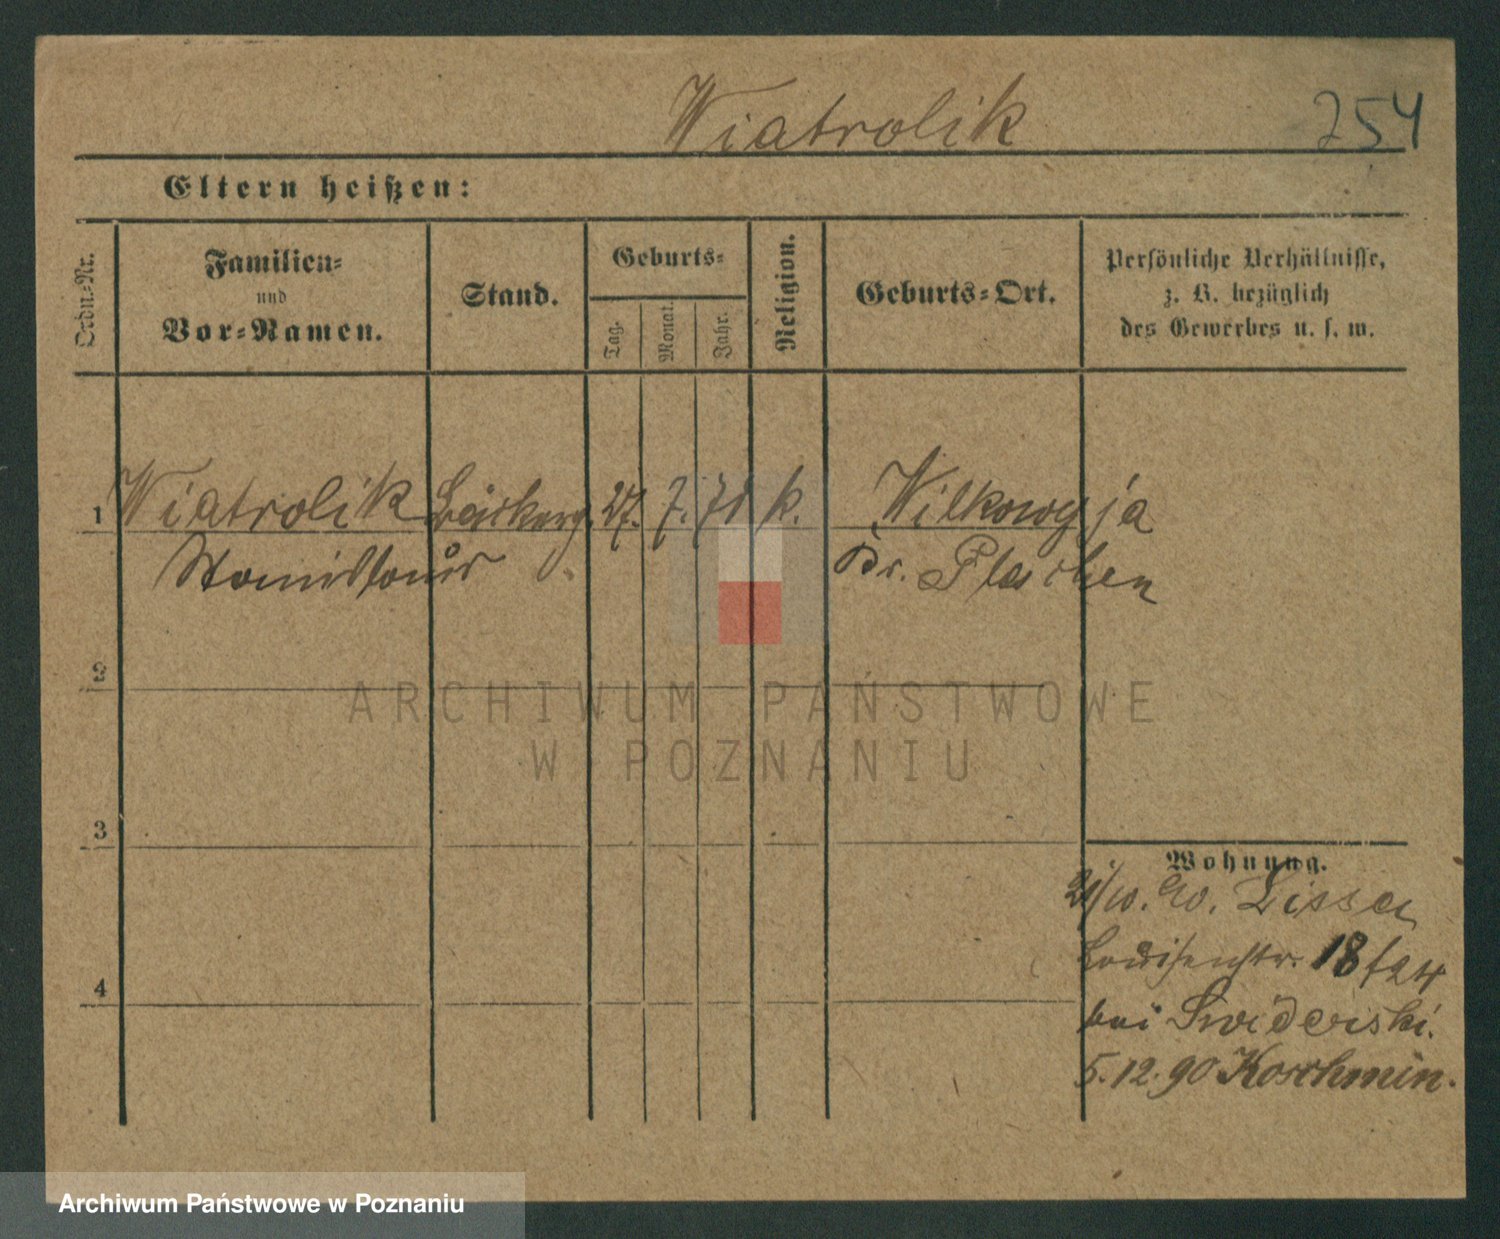 Wiatrolik
254
Eltern heißen:
Ordn.-Nr.
Familien-
und
Vor-Namen.
Stand.
Geburts-
Tag.
Monat.
Jahr.
Religion.
Geburts-Ort.
Persönliche Verhältnisse,
z. B. bezüglich
des Gewerbes u. s. w.
1
Wiatrolik
27. 7. 71 k.
Wilkowyja
Kr. Pleschen
2
3
4
Wohnung.
Lissa
Louisenstr. 18
bei Swiderski.
5.12.90 Koschmin.
ARCHIWUM PAŃSTWOWE
W POZNANIU
Archiwum Państwowe w Poznaniu